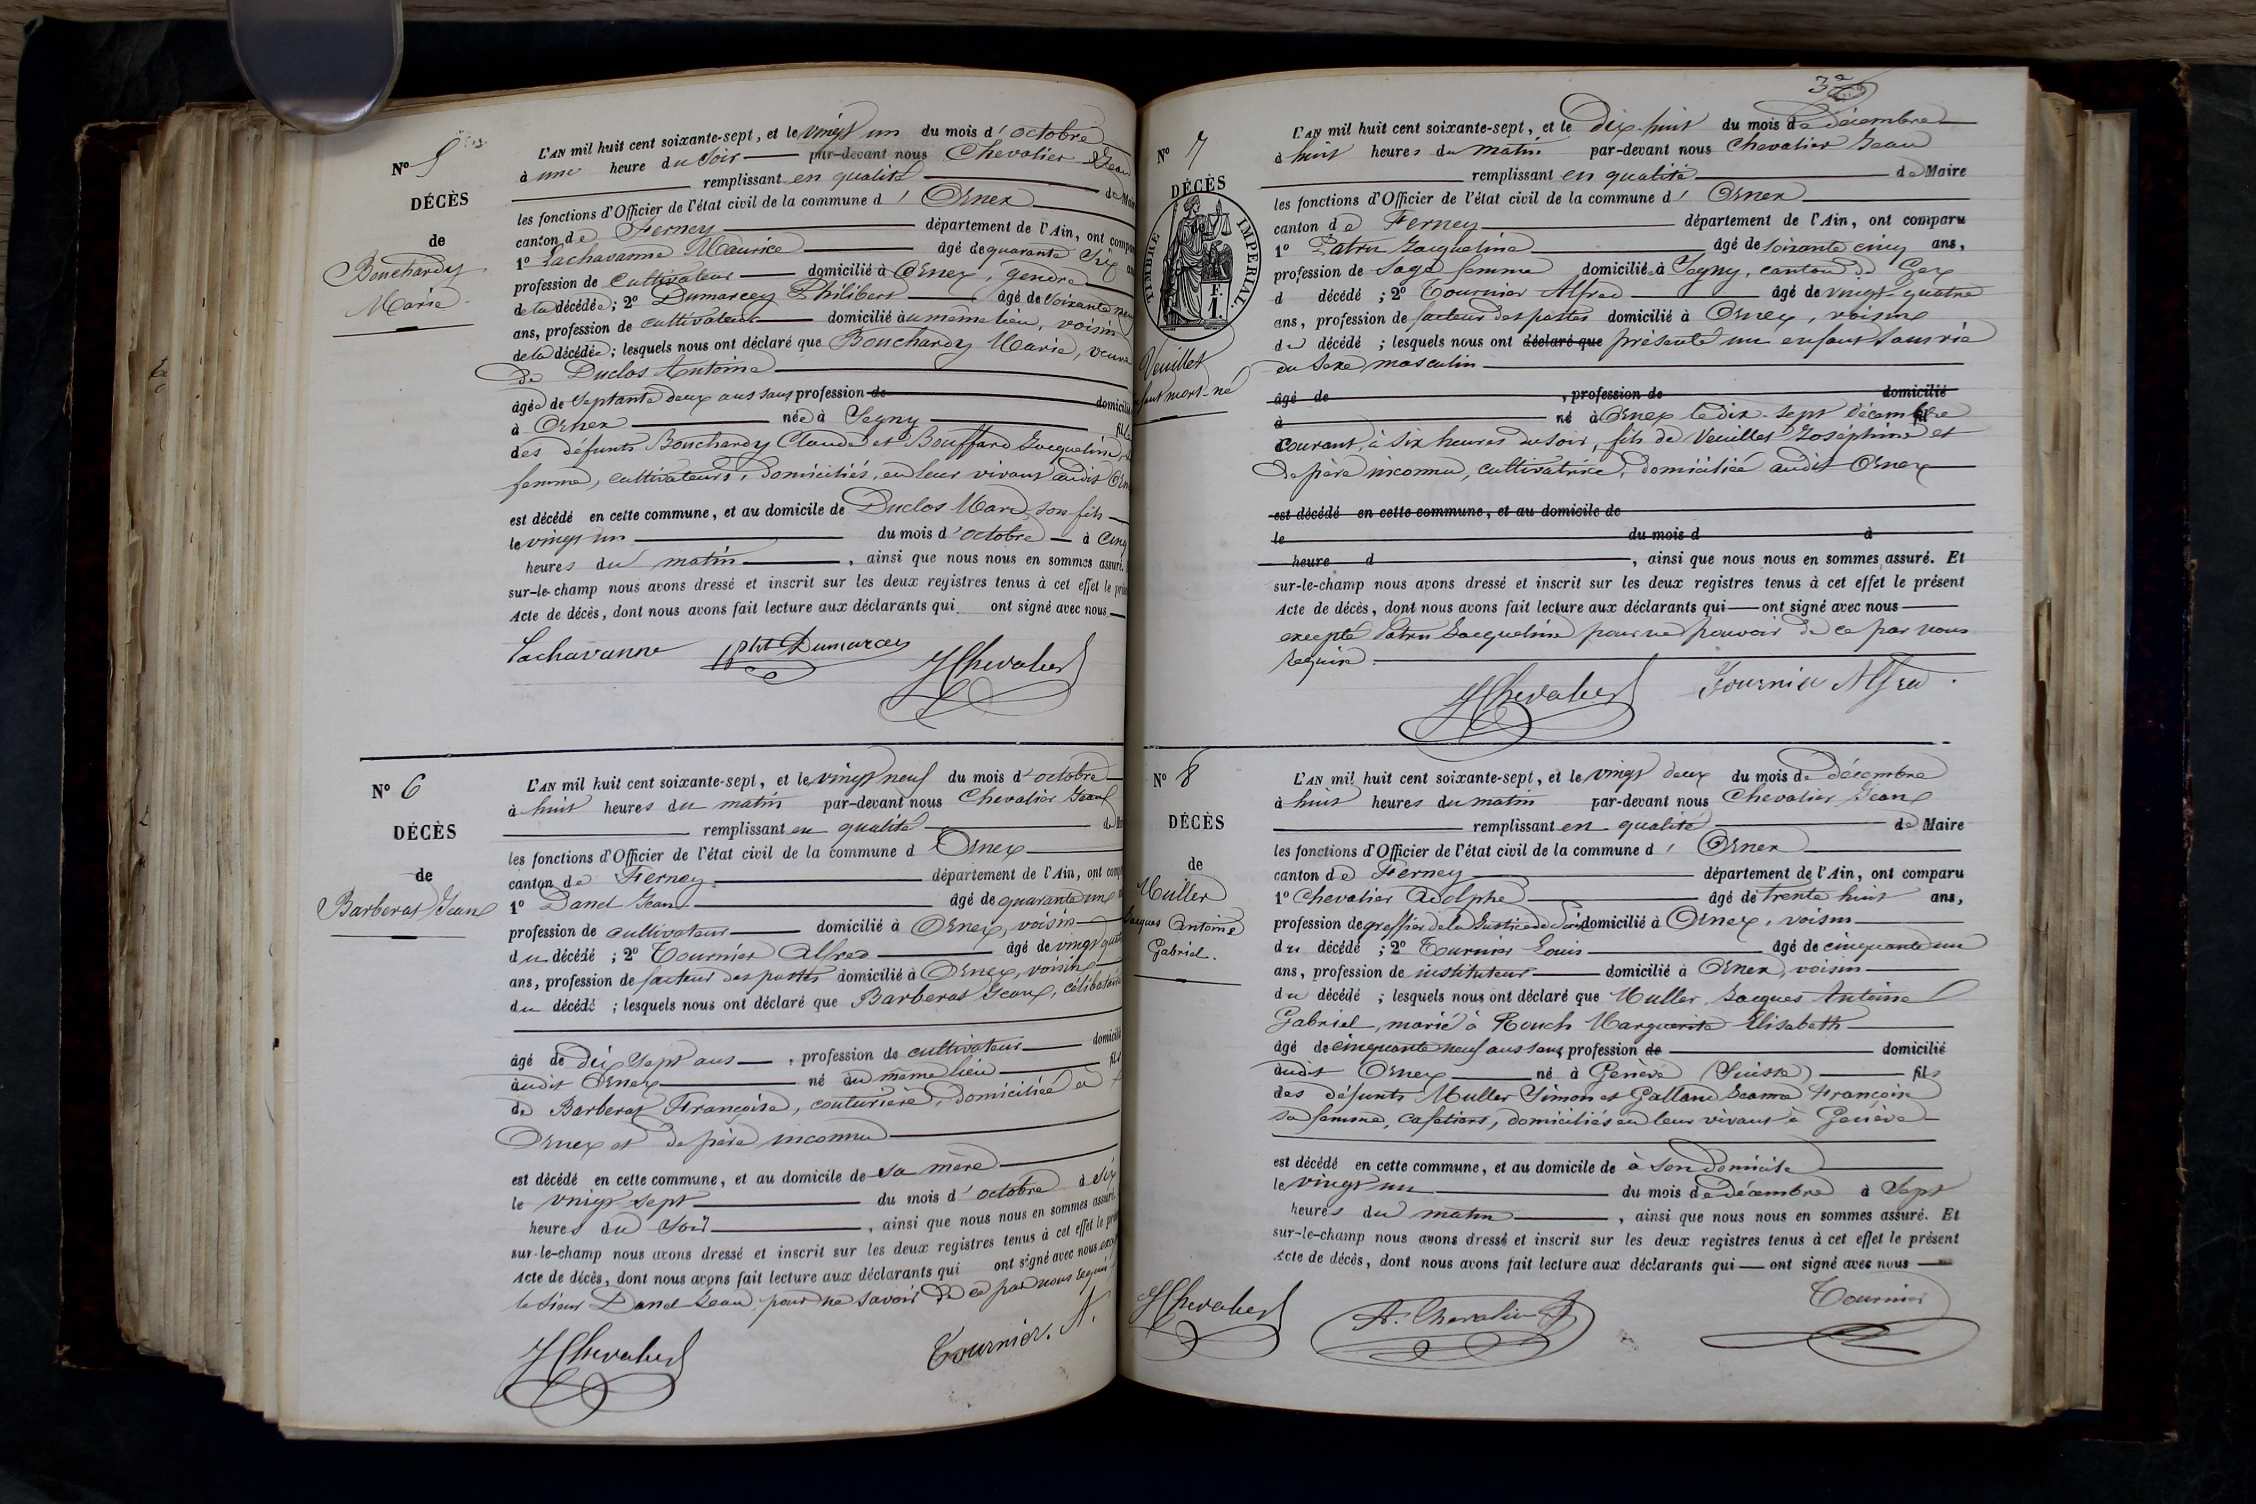 N° 5
DÉCÈS
de
Bouchardy
Marie
L'AN mil huit cent soixante-sept, et le vingt un du mois d'octobre
à une heure du soir par-devant nous Chevalier Jean
remplissant en qualité de Mai
les fonctions d'Officier de l'état civil de la commune d'Ornex
canton de Ferney département de l'Ain, ont compa
1° Lachavanne Maurice âgé de quarante six an
profession de cultivateur domicilié à Ornex, gendre
de la décédée ; 2° Dumarcey Philibert âgé de soixante neu
ans, profession de cultivateur domicilié au même lieu, voisin
de la décédée ; lesquels nous ont déclaré que Bouchardy Marie, veuve
de Duclos Antoine
âgée de septante deux ans sans profession de domicilié
à Ornex née à Segny fille
des défunts Bouchardy Claude et Bouffard Jacqueline, sa
femme, cultivateurs, domiciliés, en leur vivant audit Orn
est décédé en cette commune, et au domicile de Duclos Marc, son fils
le vingt un du mois d'octobre à cinq
heures du matin, ainsi que nous nous en sommes assuré.
sur-le-champ nous avons dressé et inscrit sur les deux registres tenus à cet effet le prés
Acte de décès, dont nous avons fait lecture aux déclarants qui ont signé avec nous
Lachavanne phbt Dumarcey JChevalier
N° 6
DÉCÈS
de
Barberat Jean
L'AN mil huit cent soixante-sept, et le vingt neuf du mois d'octobre
à huit heures du matin par-devant nous Chevalier Jean
remplissant en qualité de M
les fonctions d'Officier de l'état civil de la commune d Ornex
canton de Ferney département de l'Ain, ont comp
1° Danel Jean âgé de quarante un
profession de cultivateur domicilié à Ornex, voisin
du décédé ; 2° Tournier Alfred âgé de vingt quat
ans, profession de facteur des postes domicilié à Ornex, voisin
du décédé ; lesquels nous ont déclaré que Barberat Jean, célibataire
âgé de dix sept ans, profession de cultivateur domicilié
audit Ornex né au même lieu fils
de Barberat Françoise, couturière, domiciliée à
Ornex et de père inconnu
est décédé en cette commune, et au domicile de sa mère
le vingt sept du mois d'octobre à six
heures du soir, ainsi que nous nous en sommes assuré.
sur-le-champ nous avons dressé et inscrit sur les deux registres tenus à cet effet le pré
Acte de décès, dont nous avons fait lecture aux déclarants qui ont signé avec nous exc
le sieur Danel Jean pour ne savoir de ce par nous requis
JChevalier Tournier. A.
N° 7
DÉCÈS
de
TIMBRE IMPÉRIAL.
F.
1.
Veuillet
mort-né
L'AN mil huit cent soixante-sept, et le dix-huit du mois de décembre
à huit heures du matin par-devant nous Chevalier Jean
remplissant en qualité de Maire
les fonctions d'Officier de l'état civil de la commune d'Ornex
canton de Ferney département de l'Ain, ont comparu
1° Patru Jacqueline âgé de soixante cinq ans,
profession de sage femme domiciliée à Segny, canton de Gex
d décédé ; 2° Tournier Alfred âgé de vingt-quatre
ans, profession de facteur des postes domicilié à Ornex, voisins
du décédé ; lesquels nous ont déclaré que présenté un enfant sans vie
du sexe masculin
âgé de, profession de domicilié
à né à Ornex le dix-sept décembre fil
courant, à six heures du soir, fils de Veuillet Joséphine et
de père inconnu, cultivatrice, domiciliée audit Ornex
est décédé en cette commune, et au domicile de
le du mois d à
heure d, ainsi que nous nous en sommes assuré. Et
sur-le-champ nous avons dressé et inscrit sur les deux registres tenus à cet effet le présent
Acte de décès, dont nous avons fait lecture aux déclarants qui ont signé avec nous
excepté Patru Jacqueline pour ne pouvoir de ce par nous
requise
JChevalier Tournier Alfred
N° 8
DÉCÈS
de
Muller
Jacques Antoine
Gabriel.
L'AN mil huit cent soixante-sept, et le vingt deux du mois de décembre
à huit heures du matin par-devant nous Chevalier Jean
remplissant en qualité de Maire
les fonctions d'Officier de l'état civil de la commune d'Ornex
canton de Ferney département de l'Ain, ont comparu
1° Chevalier Adolphe âgé de trente huit ans,
profession de greffier de la Justice de Paix domicilié à Ornex, voisin
du décédé ; 2° Tournier Louis âgé de cinquante un
ans, profession de instituteur domicilié à Ornex, voisin
du décédé ; lesquels nous ont déclaré que Muller Jacques Antoine
Gabriel, marié à Rouch Marguerite Elisabeth
âgé de cinquante neuf ans sans profession de domicilié
audit Ornex né à Genève (Suisse) fils
des défunts Muller Simon et Galland Jeanne Françoise
sa femme, cafetiers, domiciliés en leur vivant à Genève
est décédé en cette commune, et au domicile de à son domicile
le vingt un du mois de décembre à sept
heures du matin, ainsi que nous nous en sommes assuré. Et
sur-le-champ nous avons dressé et inscrit sur les deux registres tenus à cet effet le présent
Acte de décès, dont nous avons fait lecture aux déclarants qui ont signé avec nous
JChevalier A. Chevalier Tournier